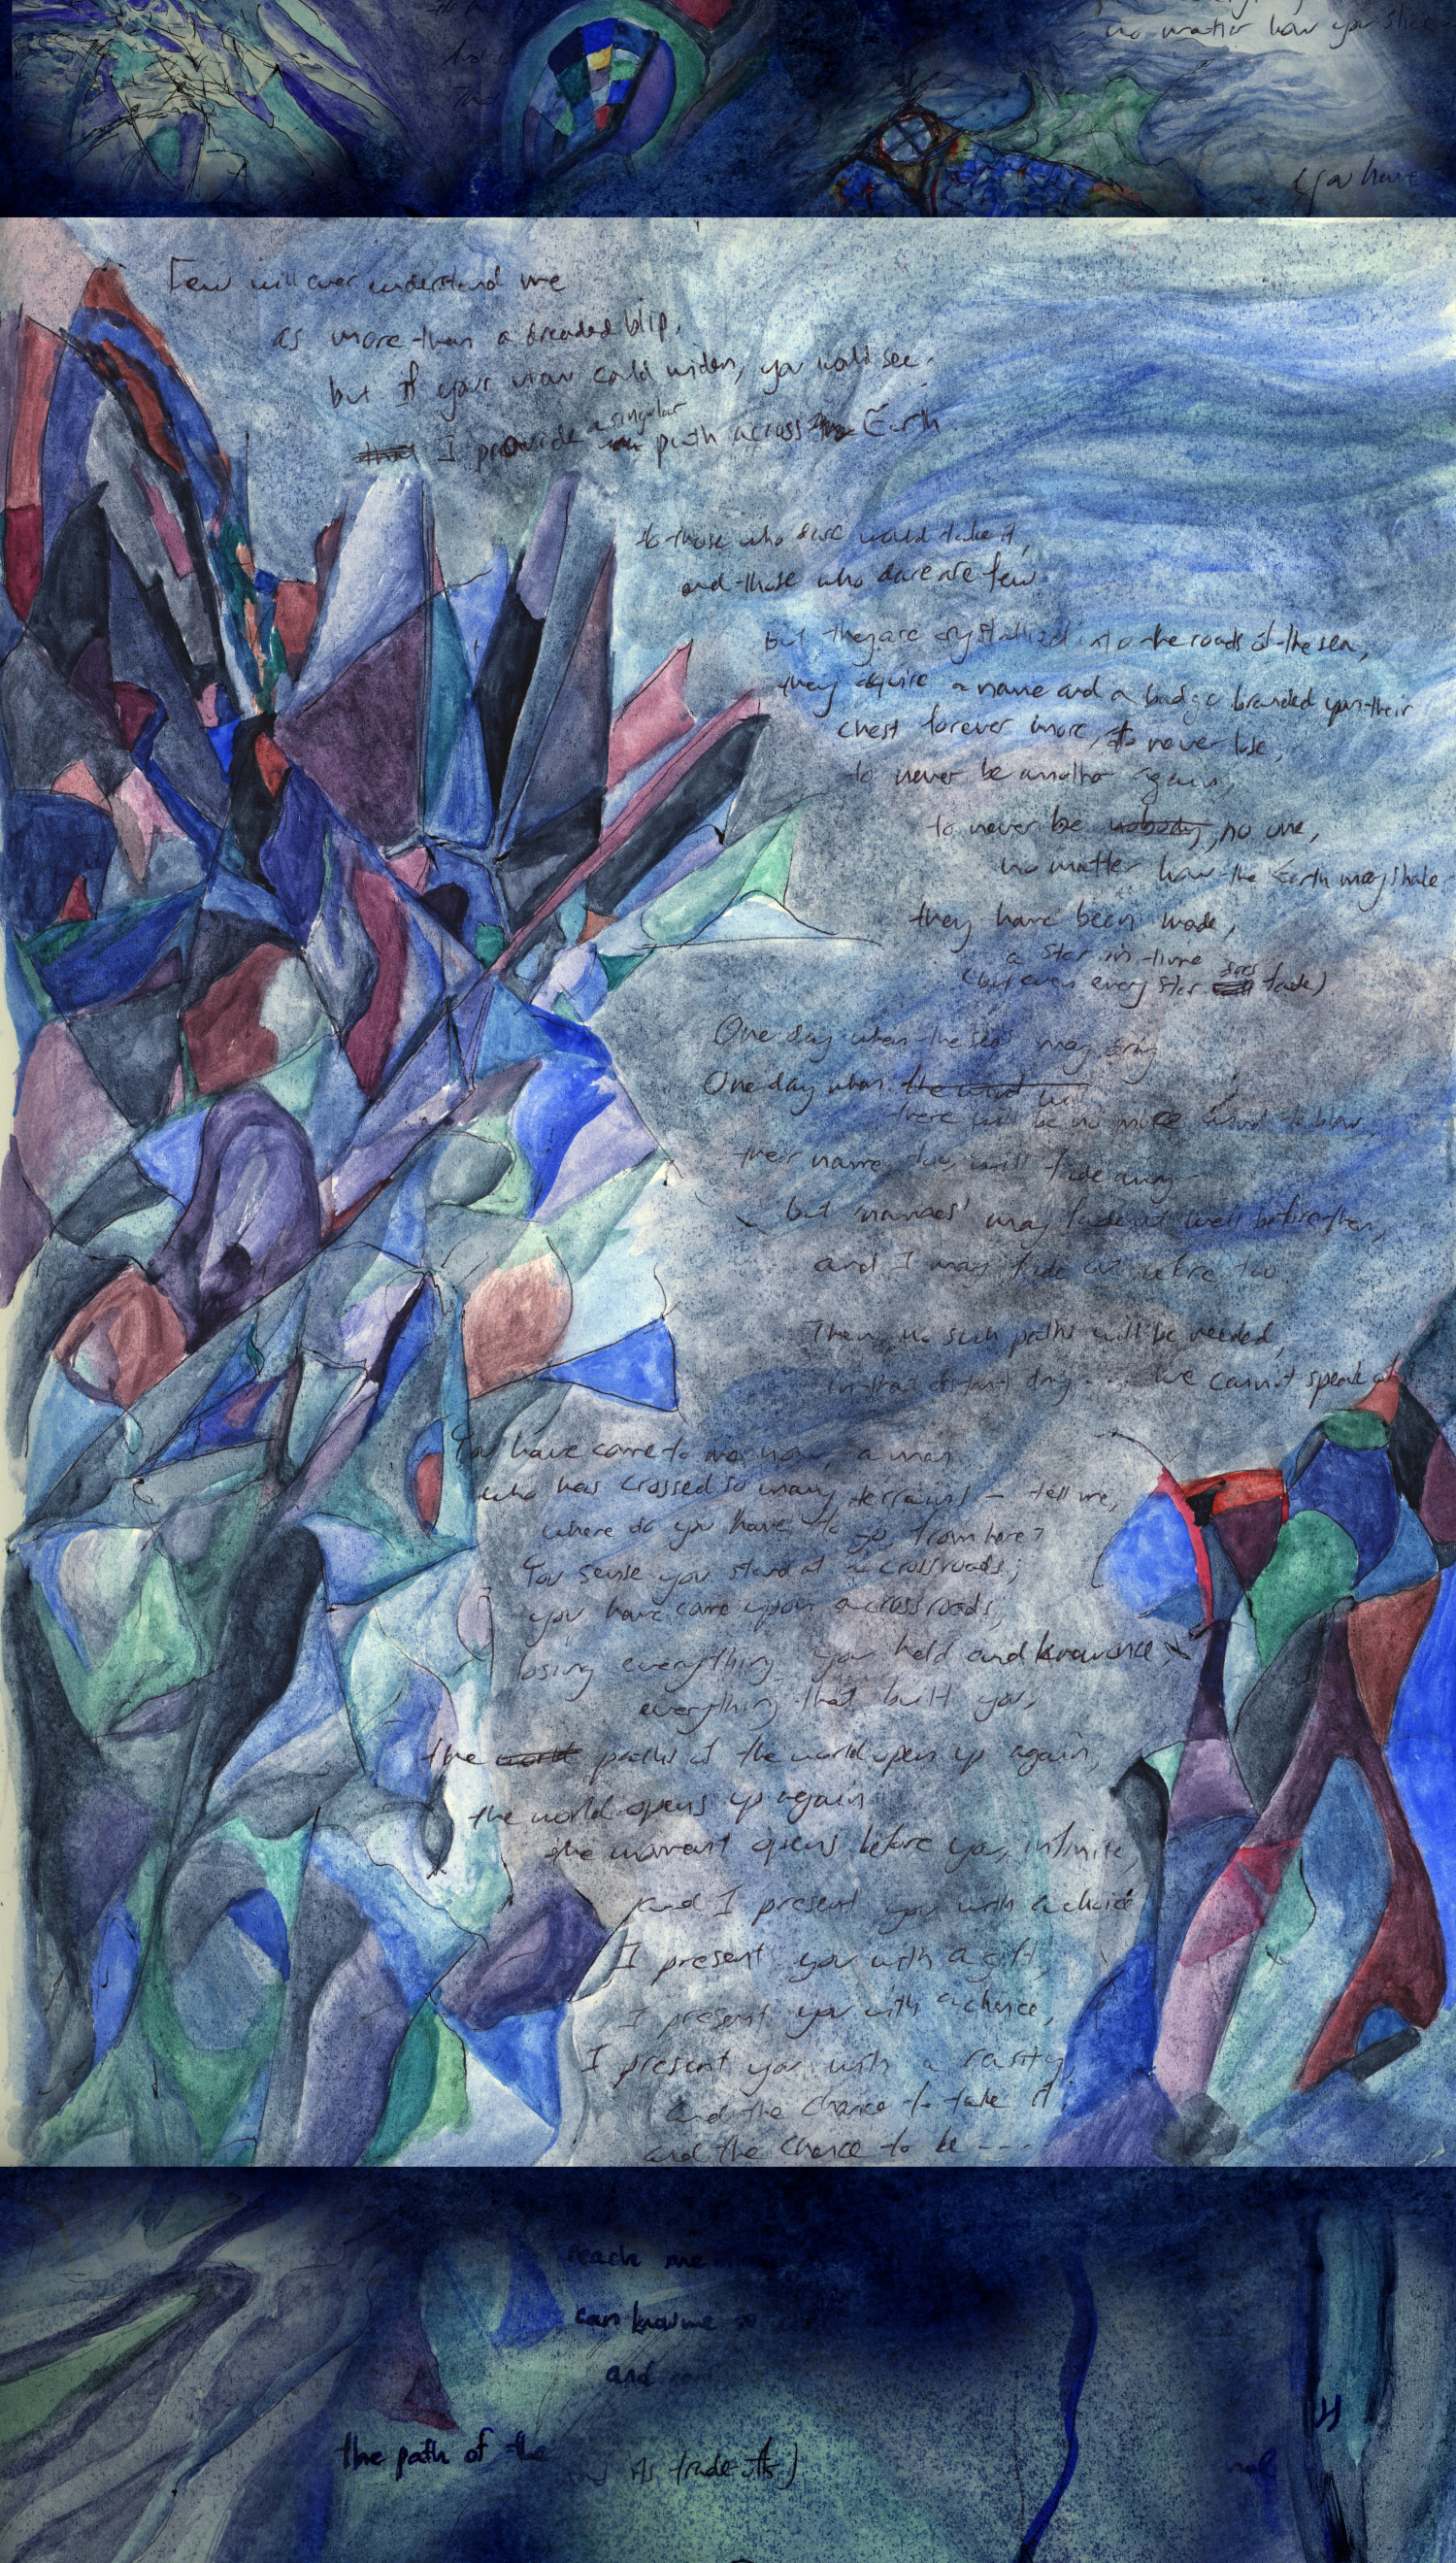 no matter how you slice
(you have
Few will ever understand me
as more than a dreaded blip,
but if your view could widen, you would see,
that I provide a singular path across the Earth.
to those who dare would take it,
and those who dare are few
but they are crystallized into the roads of the sea,
they acquire a name and a badge branded upon their
chest forever more, to never lose,
to never be another again,
to never be nobody, no one,
no matter how the Earth may shake
they have been made,
a star in time
(but even every star does fade)
One day when the sea may dry
One day when the wind will
there will be no more wind to blow,
their name too will fade away
but 'names' may fade out well before then,
and I may fade out before too.
Then no such paths will be needed,
in that distant day .... we cannot speak of.
You have come to me now, a man
who has crossed so many terrains - tell me,
where do you have to go from here?
You sense you stand at a crossroads;
you have come upon a crossroads,
losing everything you held and known once,
everything that built you,
the world paths of the world open up again,
the world opens up again
the moment opens before you, infinite,
and I present you with a choice
I present you with a gift,
I present you with a chance,
I present you with a rarity,
and the chance to take it,
and the chance to be ----
reach me
can know me
and
the path of the
its trade-offs)